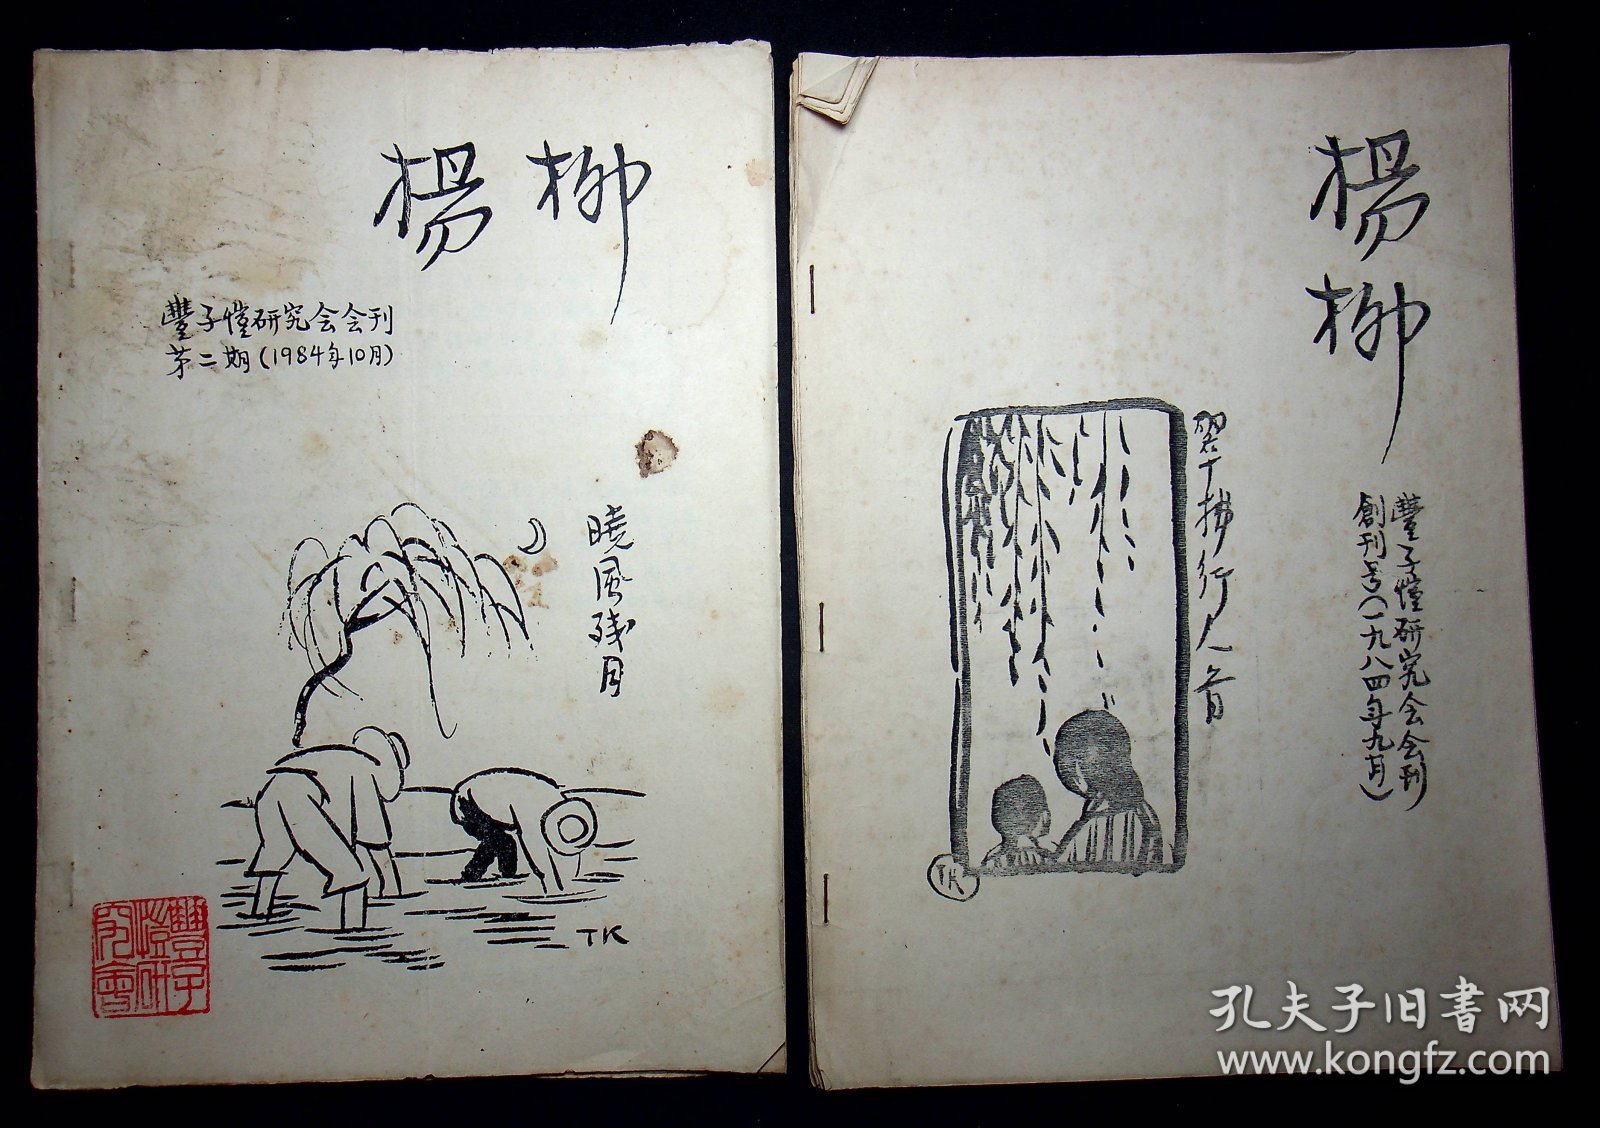 楊柳
豐子愷研究会会刊
第二期(1984年10月)
曉風残月
TK
豐子愷研究會
楊柳
豐子愷研究会会刊
創刊号(一九八四年九月)
翠拂行人首
TK
孔夫子旧書网
www.kongfz.com